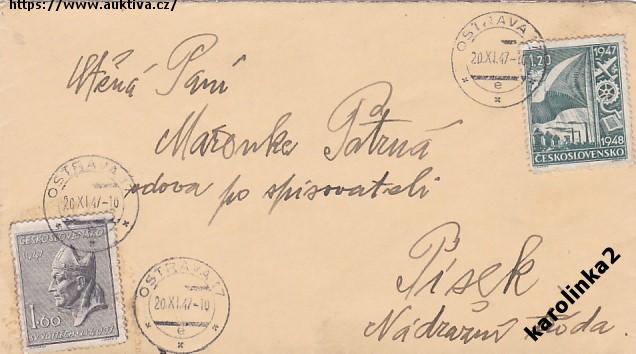 https://www.auktiva.cz/
OSTRAVA 17
20.XI.47-10
e
1.20
1947
1948
ČESKOSLOVENSKO
Vtěná Paní
Maronka Patrná
vdova po spisovateli
Písek
Nádražní
OSTRAVA 17
20.XI.47-10
ČESKOSLOVENSKO
1.60
OSTRAVA 17
20.XI.47-10
e
karolinka2